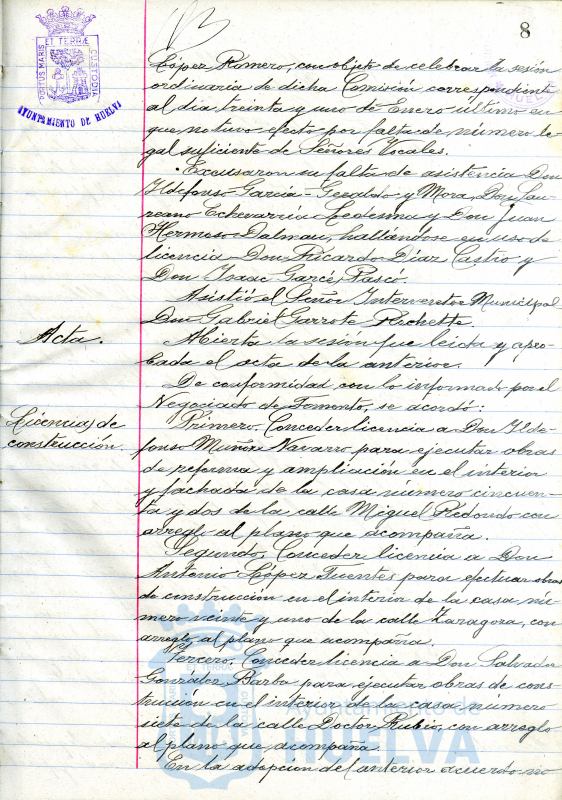 8
PORTUS MARIS ET TERRÆ CUSTODIA
AYUNTAMIENTO DE HUELVA
López Romero, con objeto de celebrar la sesión
ordinaria de dicha Comisión correspondiente
al dia treinta y uno de Enero último en
que no tuvo efecto por falta de número le-
gal suficiente de Señores Vocales.
Excusaron su falta de asistencia Don
Ildefonso García-Geraldo y Mora, Don Lau-
reano Echevarría Ledesma y Don Juan
Hermoso Dalmau, hallándose en uso de
licencia Don Ricardo Díaz Castro y
Don Isaac Garcés Pascó.
Asistió el Señor Interventor Municipal
Don Gabriel Garrote Rechette.
Acta.
Abierta la sesión fue leida y apro-
bada el acta de la anterior.
De conformidad con lo informado por el
Negociado de Fomento, se acordó:
Licencias de
construcción.
Primero. Conceder licencia a Don Ilde-
fonso Muñoz Navarro para ejecutar obras
de reforma y ampliación en el interior
y fachada de la casa número cincuen-
ta y dos de la calle Miguel Redondo con
arreglo al plano que acompaña.
Segundo. Conceder licencia a Don
Antonio López Fuentes para efectuar obras
de construcción en el interior de la casa nú-
mero veinte y uno de la calle Zaragoza, con
arreglo al plano que acompaña.
Tercero. Conceder licencia a Don Salvador
González Barba para ejecutar obras de cons-
trucción en el interior de la casa número
siete de la calle Doctor Rubio, con arreglo
al plano que acompaña.
En la adopcion del anterior acuerdo no
Ayuntamiento de
HUELVA